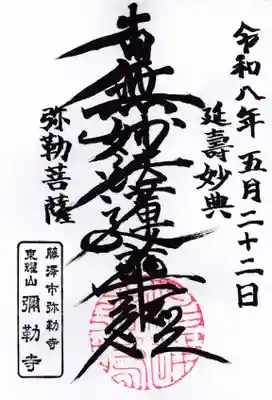 令和八年 五月二十二日
延壽妙典
南無妙法蓮華経
弥勒菩薩
藤澤市弥勒寺
東耀山 彌勒寺